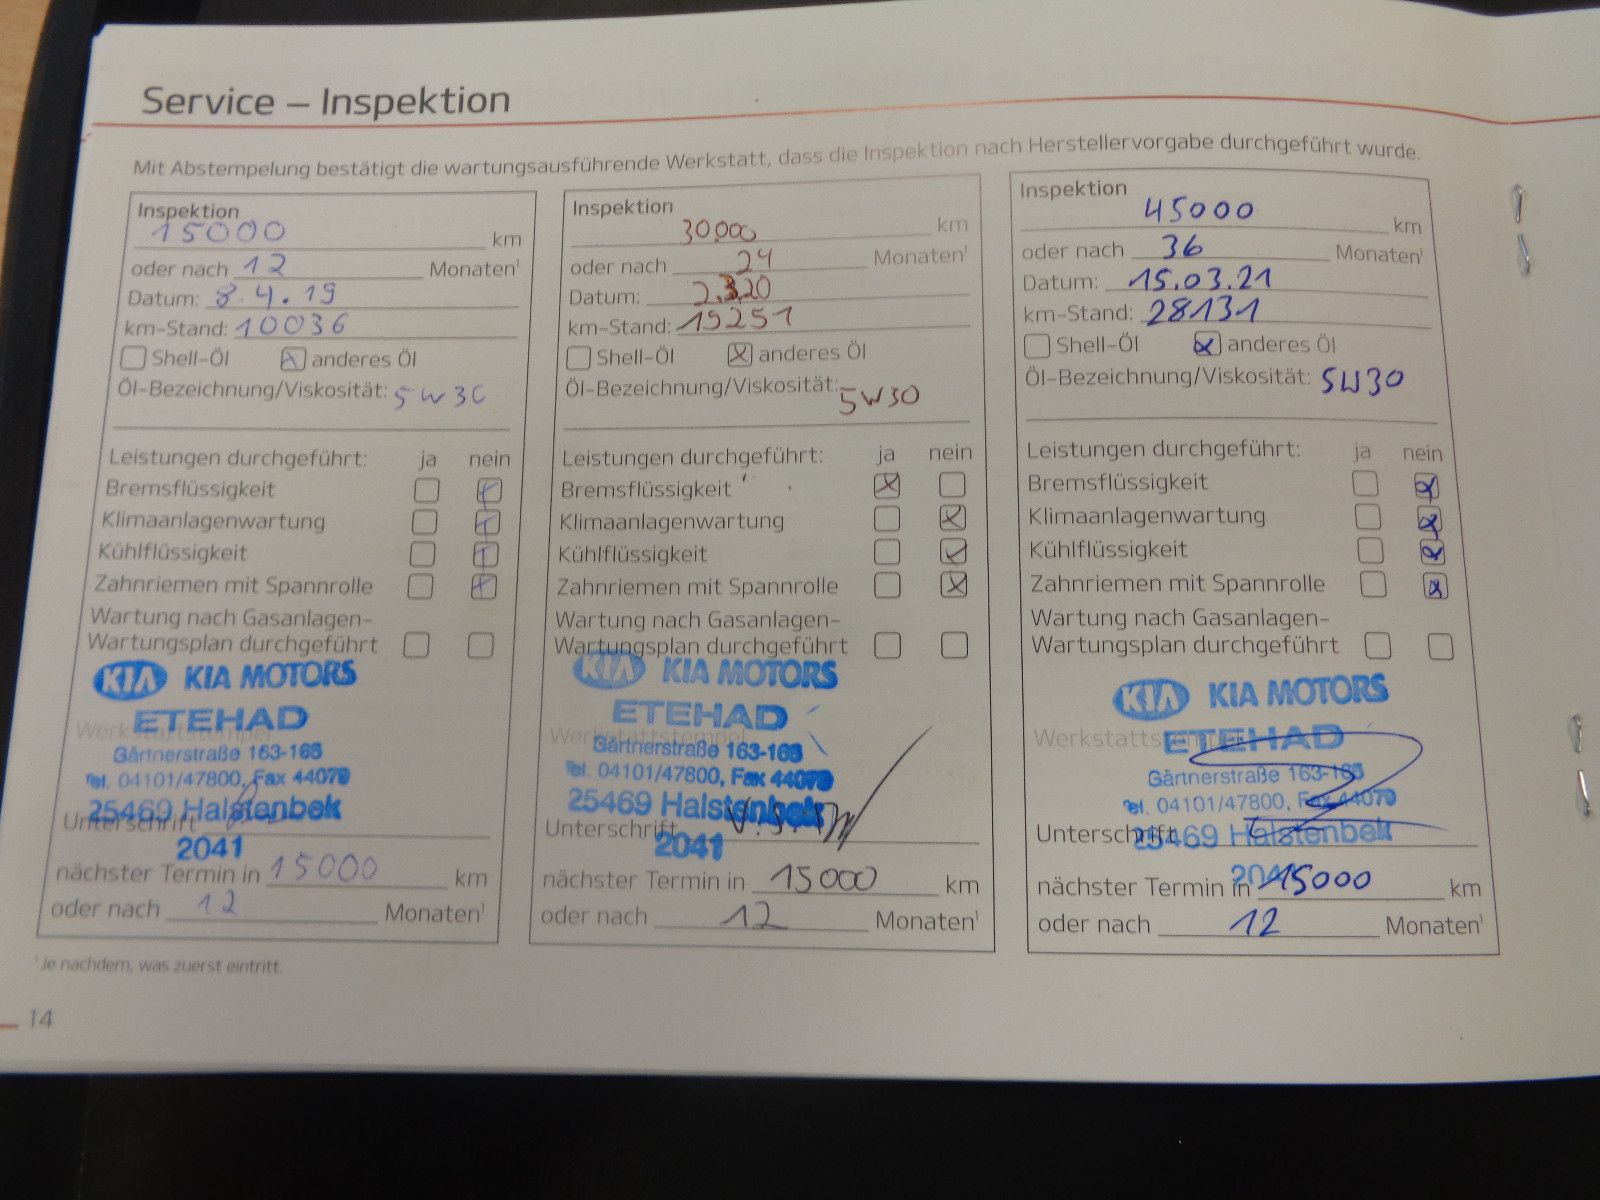 Service – Inspektion
Mit Abstempelung bestätigt die wartungsausführende Werkstatt, dass die Inspektion nach Herstellervorgabe durchgeführt wurde.
Inspektion
15000 km
oder nach 12 Monaten¹
Datum: 8.4.19
km-Stand: 10036
Shell-Öl anderes Öl
Öl-Bezeichnung/Viskosität: 5W30
Leistungen durchgeführt: ja nein
Bremsflüssigkeit
Klimaanlagenwartung
Kühlflüssigkeit
Zahnriemen mit Spannrolle
Wartung nach Gasanlagen-
Wartungsplan durchgeführt
KIA KIA MOTORS
Werkstattstempel
ETEHAD
Gärtnerstraße 163-165
Tel. 04101/47800, Fax 44079
25469 Halstenbek
Unterschrift
2041
nächster Termin in 15000 km
oder nach 12 Monaten¹
Inspektion
30000 km
oder nach 24 Monaten¹
Datum: 2.3.20
km-Stand: 19251
Shell-Öl anderes Öl
Öl-Bezeichnung/Viskosität: 5W30
Leistungen durchgeführt: ja nein
Bremsflüssigkeit
Klimaanlagenwartung
Kühlflüssigkeit
Zahnriemen mit Spannrolle
Wartung nach Gasanlagen-
Wartungsplan durchgeführt
KIA KIA MOTORS
ETEHAD
Werkstattstempel
Gärtnerstraße 163-165
Tel. 04101/47800, Fax 44079
25469 Halstenbek
Unterschrift
2041
nächster Termin in 15000 km
oder nach 12 Monaten¹
Inspektion
45000 km
oder nach 36 Monaten¹
Datum: 15.03.21
km-Stand: 28131
Shell-Öl anderes Öl
Öl-Bezeichnung/Viskosität: 5W30
Leistungen durchgeführt: ja nein
Bremsflüssigkeit
Klimaanlagenwartung
Kühlflüssigkeit
Zahnriemen mit Spannrolle
Wartung nach Gasanlagen-
Wartungsplan durchgeführt
KIA KIA MOTORS
Werkstattstempel
ETEHAD
Gärtnerstraße 163-165
Tel. 04101/47800, Fax 44079
Unterschrift
25469 Halstenbek
2041
nächster Termin in 15000 km
oder nach 12 Monaten¹
¹Je nachdem, was zuerst eintritt.
14